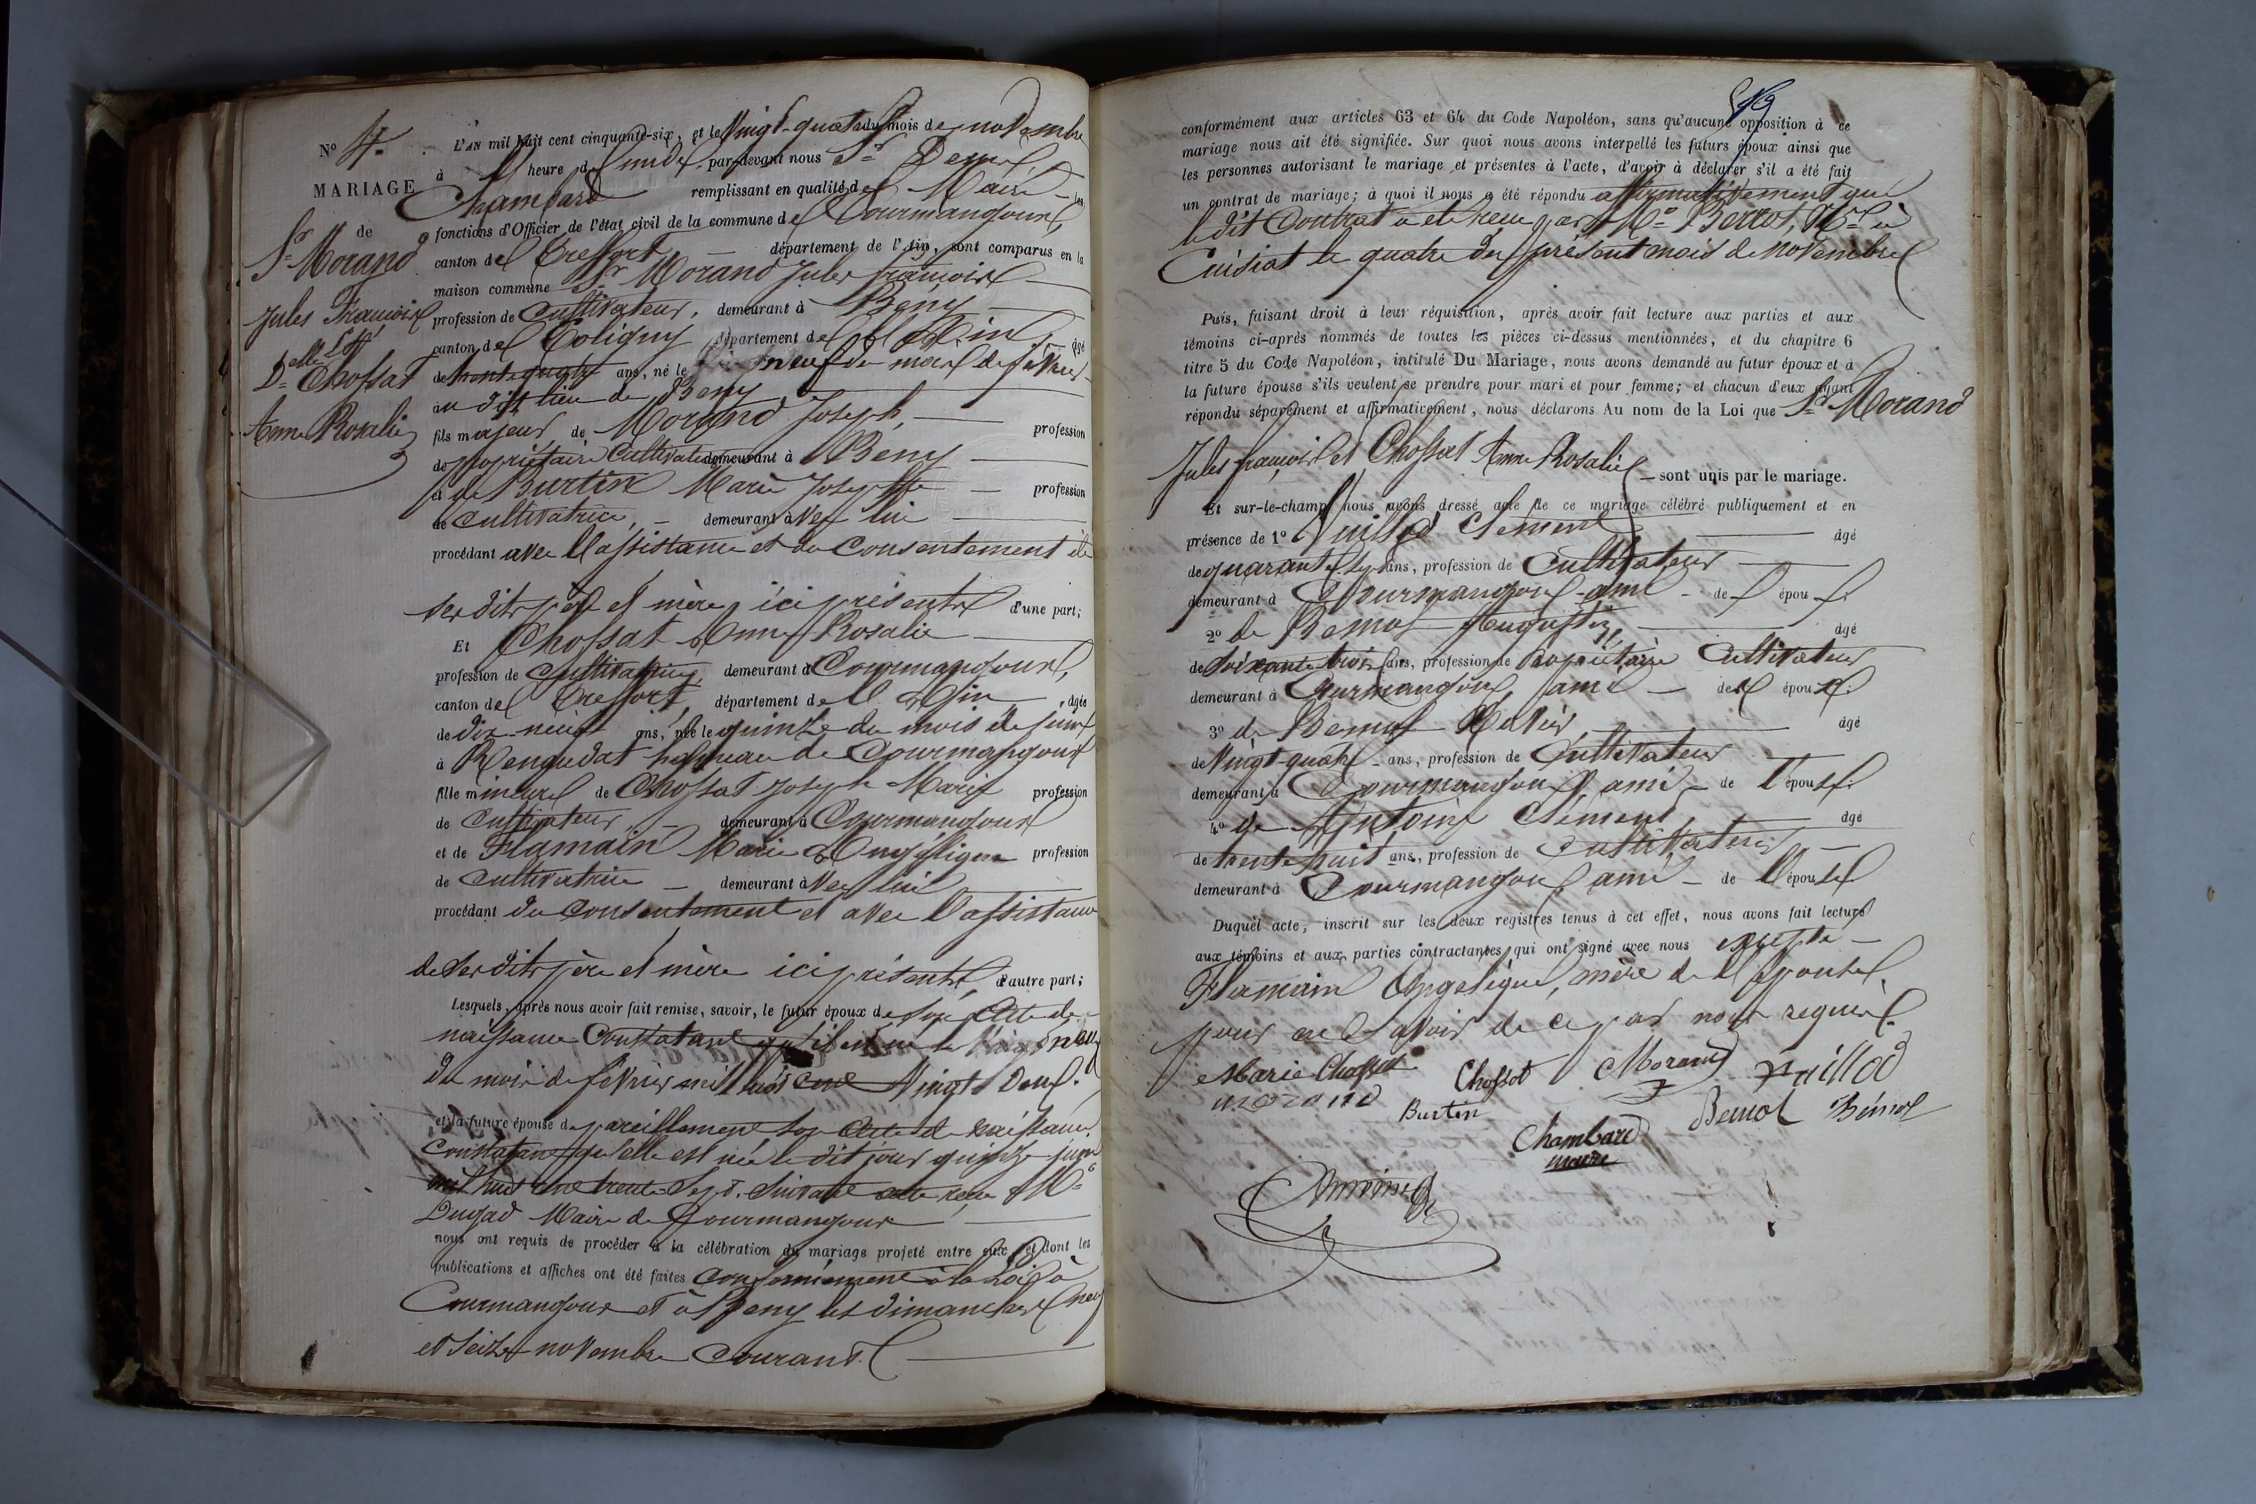 N° 4.
MARIAGE
de
Sr Morand
Jules François
Et
Delle Chossat
Anne Rosalie
L'AN mil huit cent cinquante-six, et le Vingt-quatre du mois de novembre
à heure de midi par-devant nous Sr
Chambard remplissant en qualité de Maire les
fonctions d'Officier de l'état civil de la commune de Courmangoux,
canton de Treffort département de l'Ain, sont comparus en la
maison commune Sr Morand Jules françois
profession de Cultivateur, demeurant à Beny
canton de Coligny département de l'Ain âgé
de trente quatre ans, né le neuf du mois de février
au dit lieu de Beny
fils majeur de Morand Joseph, profession
de propriétaire Cultivateur demeurant à Beny
et de Burtin Marie Josephte profession
de Cultivatrice, demeurant avec lui
procédant avec l'assistance et du Consentement de
ses dits père et mère, ici présents d'une part;
Et Chossat Anne Rosalie
profession de Cultivatrice, demeurant à Courmangoux,
canton de Treffort, département de l'Ain, âgée
de dix-neuf ans, née le quinze du mois de juin
à Roissiat hameau de Courmangoux
fille mineure de Chossat Joseph Marie profession
de Cultivateur demeurant à Courmangoux
et de Flamain Marie Angélique profession
de Cultivatrice demeurant avec lui
procédant du Consentement et avec l'assistance
de ses dits père et mère ici présents, d'autre part;
Lesquels, après nous avoir fait remise, savoir, le futur époux de son Acte de
naissance Constatant qu'il est né le neuf
du mois de février mil huit cent Vingt Deux.
et la future épouse de pareillement son Acte de naissance
Constatant qu'elle est née le dit jour quinze juin
mil huit cent trente Sept. Suivant acte reçu Mr
Dugad Maire de Courmangoux
nous ont requis de procéder à la célébration du mariage projeté entre eux, et dont les
publications et affiches ont été faites conformément à la Loi à
Courmangoux et à Beny les dimanches neuf
et seize novembre Courant.
conformément aux articles 63 et 64 du Code Napoléon, sans qu'aucune opposition à ce
mariage nous ait été signifiée. Sur quoi nous avons interpellé les futurs époux ainsi que
les personnes autorisant le mariage et présentes à l'acte, d'avoir à déclarer s'il a été fait
un contrat de mariage; à quoi il nous a été répondu affirmativement que
le dit Contrat a été reçu par Me Berrod, Nre à
Cuisiat le quatre du présent mois de novembre
Puis, faisant droit à leur réquisition, après avoir fait lecture aux parties et aux
témoins ci-après nommés de toutes les pièces ci-dessus mentionnées, et du chapitre 6
titre 5 du Code Napoléon, intitulé Du Mariage, nous avons demandé au futur époux et à
la future épouse s'ils veulent se prendre pour mari et pour femme; et chacun d'eux ayant
répondu séparément et affirmativement, nous déclarons Au nom de la Loi que Sr Morand
Jules françois et Chossat Anne Rosalie sont unis par le mariage.
Et sur-le-champ nous avons dressé acte de ce mariage célébré publiquement et en
présence de 1° Vuillod Clément âgé
de quarante ans, profession de Cultivateur
demeurant à Courmangoux ami de l'époux.
2° de Bemol Augustin, âgé
de soixante trois ans, profession de Propriétaire Cultivateur
demeurant à Courmangoux, ami de l'époux.
3° de Bemol Xavier âgé
de Vingt-quatre ans, profession de Cultivateur
demeurant à Courmangoux ami de l'épouse.
4° de Antoine Clément âgé
de trente huit ans, profession de Cultivateur
demeurant à Courmangoux ami de l'épouse
Duquel acte, inscrit sur les deux registres tenus à cet effet, nous avons fait lecture
aux témoins et aux parties contractantes qui ont signé avec nous excepté
Flamain Angelique, mère de l'Epouse,
pour ne savoir de ce par nous requise.
Marie Chossat Chossat Morand Vuillod
morand Burtin Bemol Bémol
Chambard
maire
Antoine